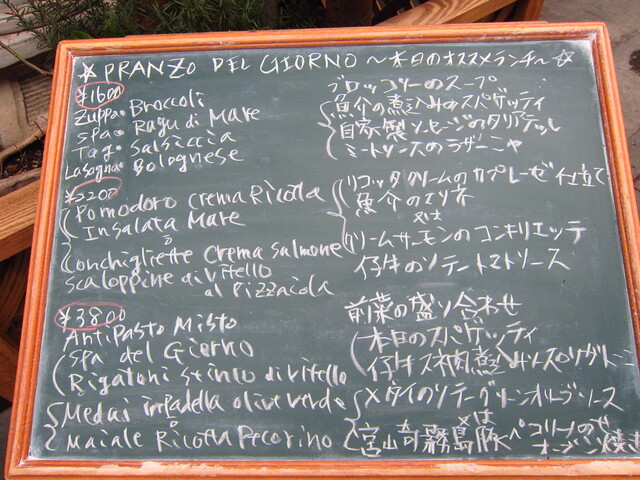 ☆ PRANZO DEL GIORNO ～本日のオススメランチ～ ☆
¥1600
Zuppa・Broccoli ブロッコリーのスープ
Spa・Ragu di Mare 魚介の煮込みのスパゲッティ
Tag・Salsiccia 自家製ソーセージのタリアテッレ
Lasagna・Bolognese ミートソースのラザーニャ
¥2200
Pomodoro crema Ricotta リコッタクリームのカプレーゼ仕立て
Insalata Mare 魚介のサラダ
o 又は
Conchigliette Crema Salmone クリームサーモンのコンキリエッテ
Scaloppine di vitello 仔牛のソテートマトソース
al Pizzaiola
¥3800
Antipasto Misto 前菜の盛り合わせ
Spa del Giorno 本日のスパゲッティ
Rigatoni Stinco di vitello 仔牛スネ肉煮込みソースのリガトーニ
Medai in padella olive verde メダイのソテーグリーンオリーブソース
o 又は
Maiale Ricotta Pecorino 霧島豚ペコリーノのせ
オーブン焼き